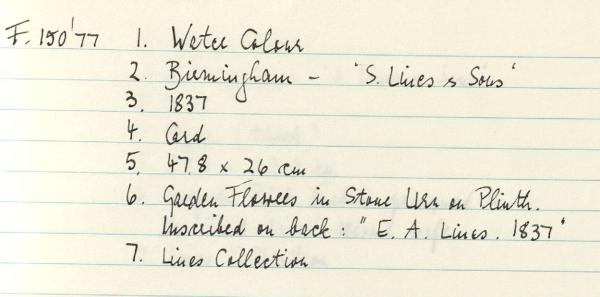 F. 150'77 1. Water Colour
2. Birmingham - "S. Lines & Sons"
3. 1837
4. Card
5. 47.8 x 26 cm
6. Garden Flowers in Stone Urn on Plinth.
Inscribed on back: "E. A. Lines. 1837"
7. Lines Collection